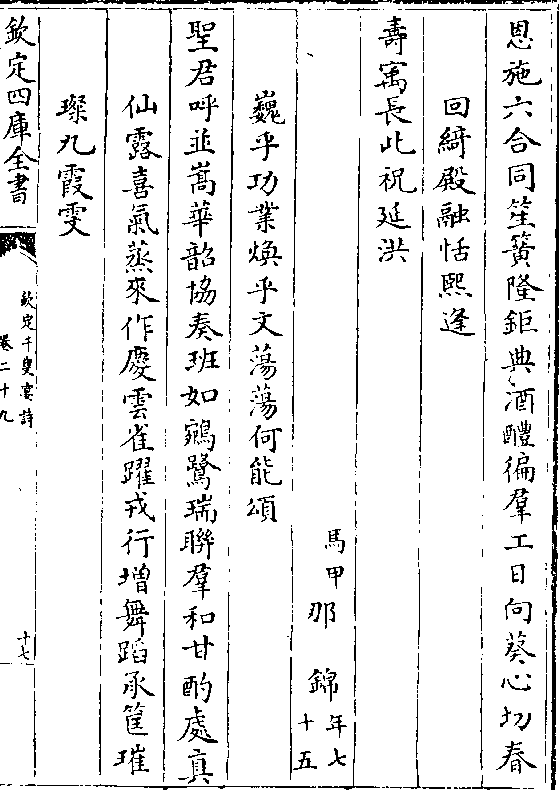 恩施六合同笙簧隆鉅典酒醴徧羣工日向葵心切春
回綺殿融恬熙逢
壽㝢長此祝延洪
馬甲那錦年七十五
巍乎功業煥乎文蕩蕩何能頌
聖君呼並嵩華韶協奏班如鵷鷺瑞聯羣和甘酌處真
仙露喜氣蒸來作慶雲雀躍戎行增舞蹈承筐璀
璨九霞雯
欽定四庫全書
欽定千叟宴詩
卷二十九
十七